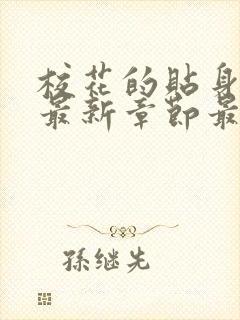 校花的贴身
最新章节最
孫继先